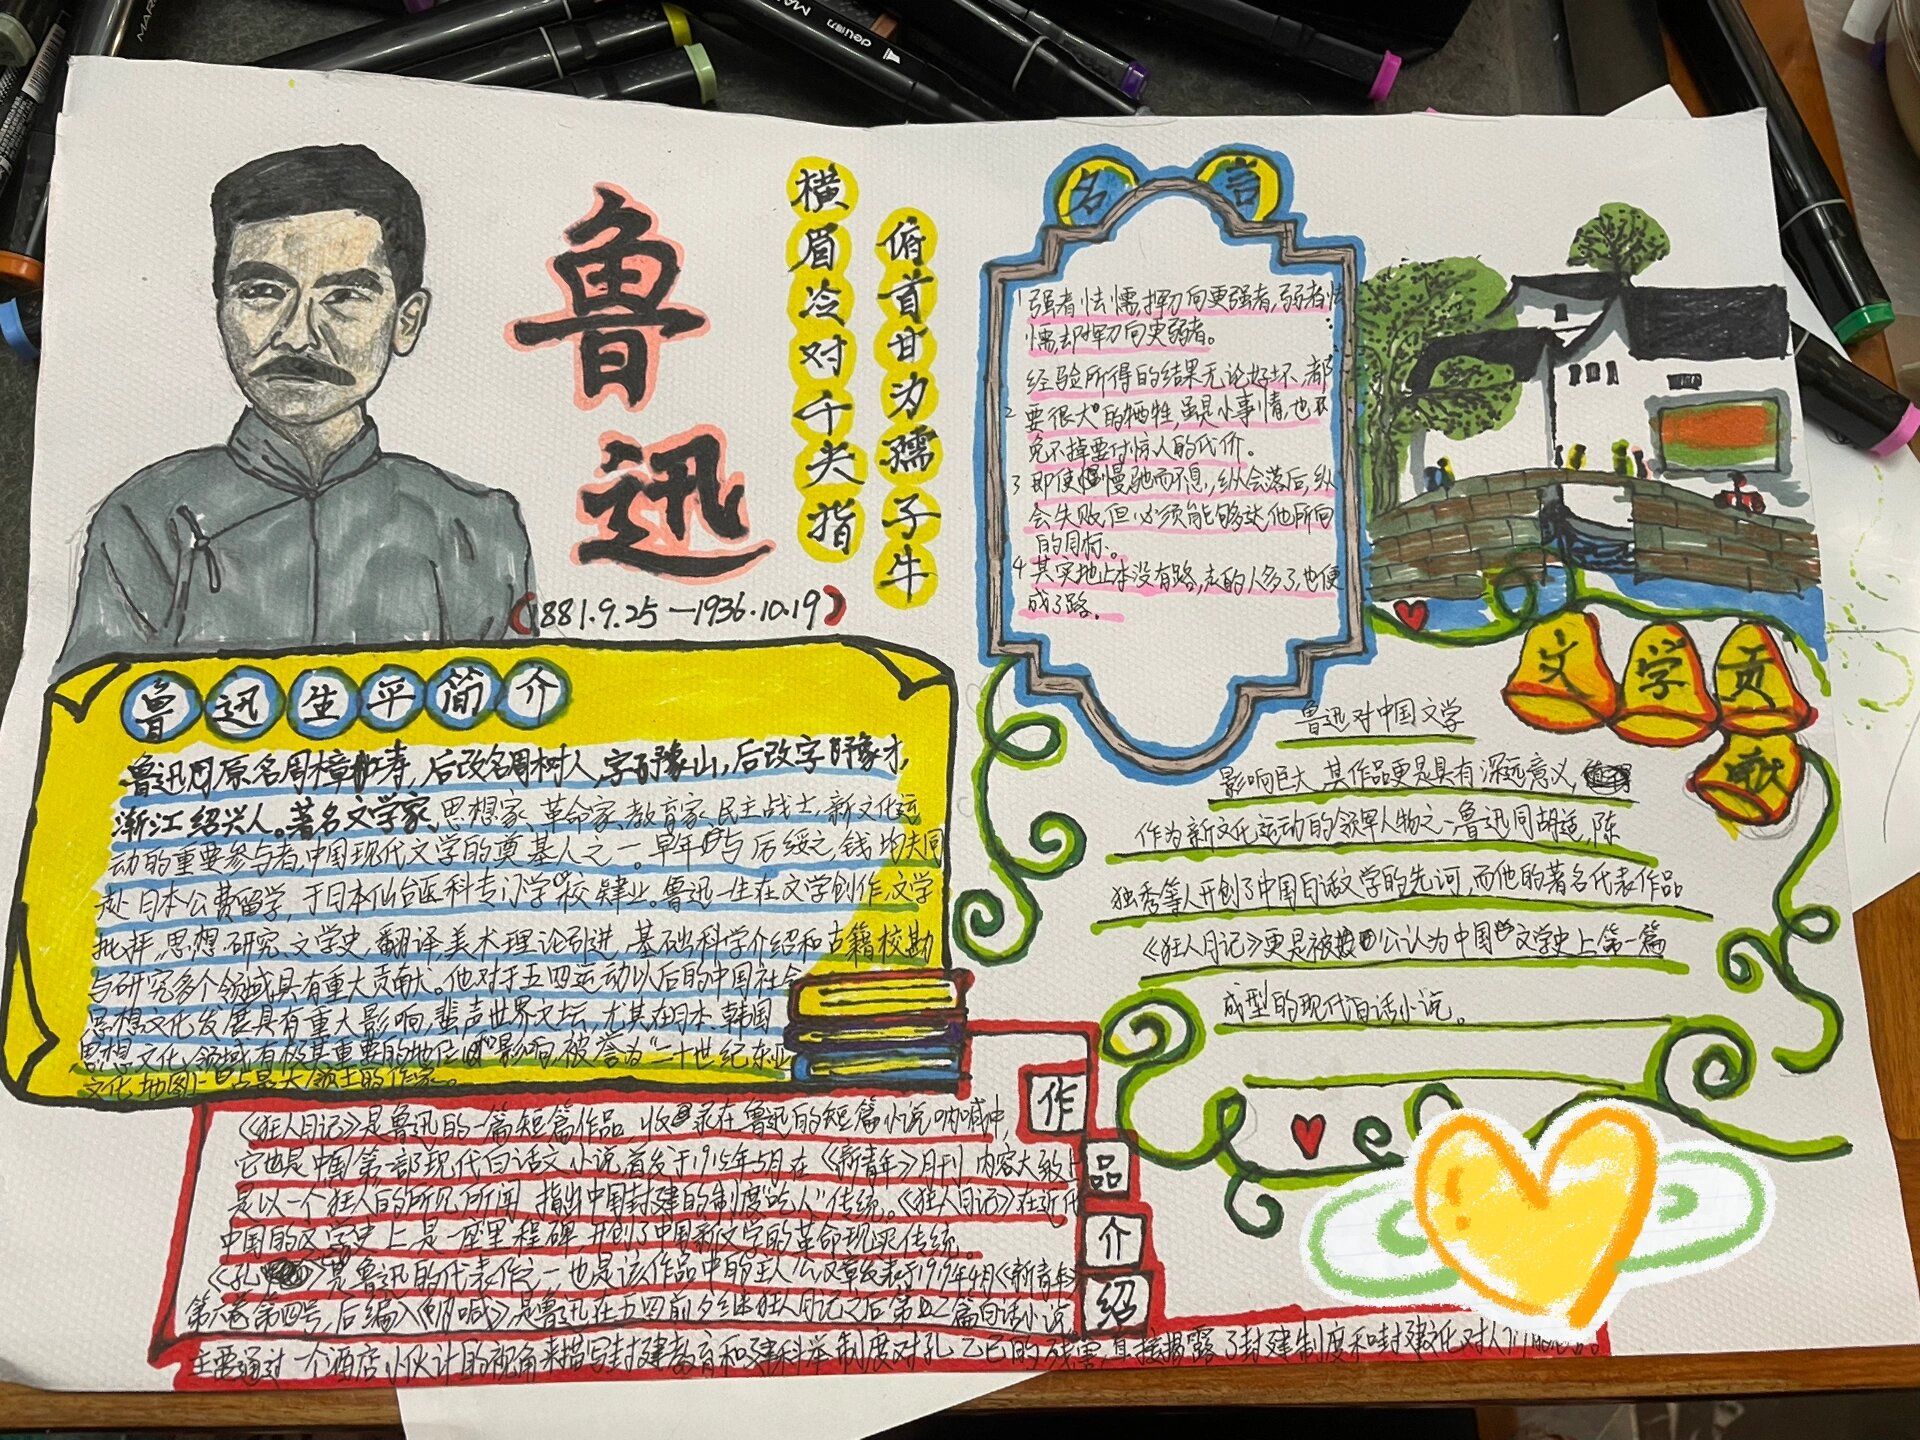 鲁迅
横眉冷对千夫指
俯首甘为孺子牛
(1881.9.25—1936.10.19)
鲁迅生平简介
鲁迅原名周樟寿,后改名周树人,字豫山,后改字豫才,
浙江绍兴人。著名文学家、思想家、革命家、教育家、民主战士,新文化运
动的重要参与者,中国现代文学的奠基人之一。早年与厉绥之,钱均夫同
赴日本公费留学,于日本仙台医科专门学校肄业。鲁迅一生在文学创作、文学
批评、思想研究、文学史、翻译、美术理论引进、基础科学介绍和古籍校勘
与研究多个领域具有重大贡献。他对于五四运动以后的中国社会
思想文化发展具有重大影响,蜚声世界文坛,尤其在日本、韩国
思想文化领域有极其重要的地位和影响,被誉为“二十世纪东亚
文化地图上占最大领土的作家。
名言
1 强者怯懦,挥刀向更强者,弱者怯
懦,却挥刀向更弱者。
2 经验所得的结果无论好坏,都
要很大的牺牲,虽是小事情,也
免不掉要付惊人的代价。
3 即使慢慢驰而不息,纵会落后,纵
会失败,但必须能够达他所向
的目标。
4 其实地上本没有路,走的人多了,也便
成了路。
文学贡献
鲁迅对中国文学
影响巨大,其作品更是具有深远意义,
作为新文化运动的领军人物之一鲁迅同胡适,陈
独秀等人开创了中国白话文学的先河,而他的著名代表作品
《狂人日记》更是被公认为中国文学史上第一篇
成型的现代白话小说。
作品介绍
《狂人日记》是鲁迅的一篇短篇作品,收录在鲁迅的短篇小说呐喊中,
它也是中国第一部现代白话文小说,首发于1918年5月在《新青年》月刊,内容大致上
是以一个狂人的所见所闻,指出中国封建的制度“吃人”传统。《狂人日记》在近代
中国的文学史上,是一座里程碑,开创了中国新文学的革命现实传统。
《孔 》是鲁迅的代表作之一,也是该作品中的主人公,文章发表于1919年4月《新青年》
第六卷第四号,后编入《呐喊》,是鲁迅在五四前夕继狂人日记之后第二篇白话小说,
主要通过一个酒店小伙计的视角来描写封建教育和科举制度对孔乙己的残害,直接揭露了封建制度和封建文化对人